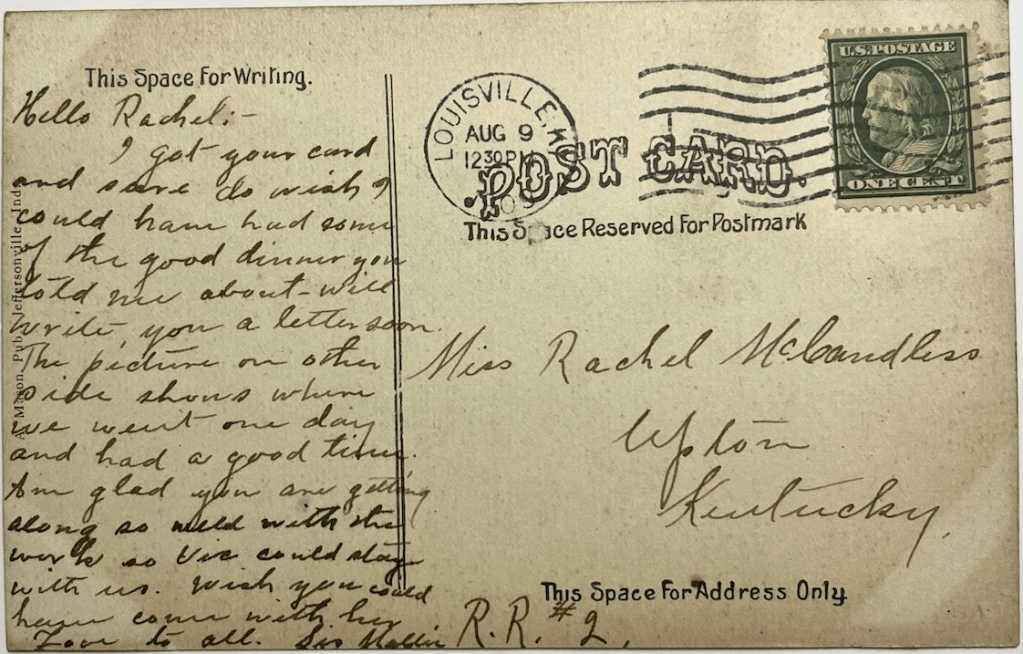 This Space For Writing.
Hello Rachel:-
I got your card
and sure do wish I
could have had some
of the good dinner you
told me about - will
write you a letter soon.
The picture on other
side shows where
we went one day
and had a good time.
Am glad you are getting
along so well with the
work so Vic could stay
with us. Wish you could
have come with her
Love to all. Sis Mollie
Mason. Pub. Jeffersonville, Ind.
LOUISVILLE, K
AUG 9
12 30 P
POST CARD.
This Space Reserved For Postmark
U.S. POSTAGE
ONE CENT
Miss Rachel McCandless
Upton
Kentucky.
R.R. #2,
This Space For Address Only